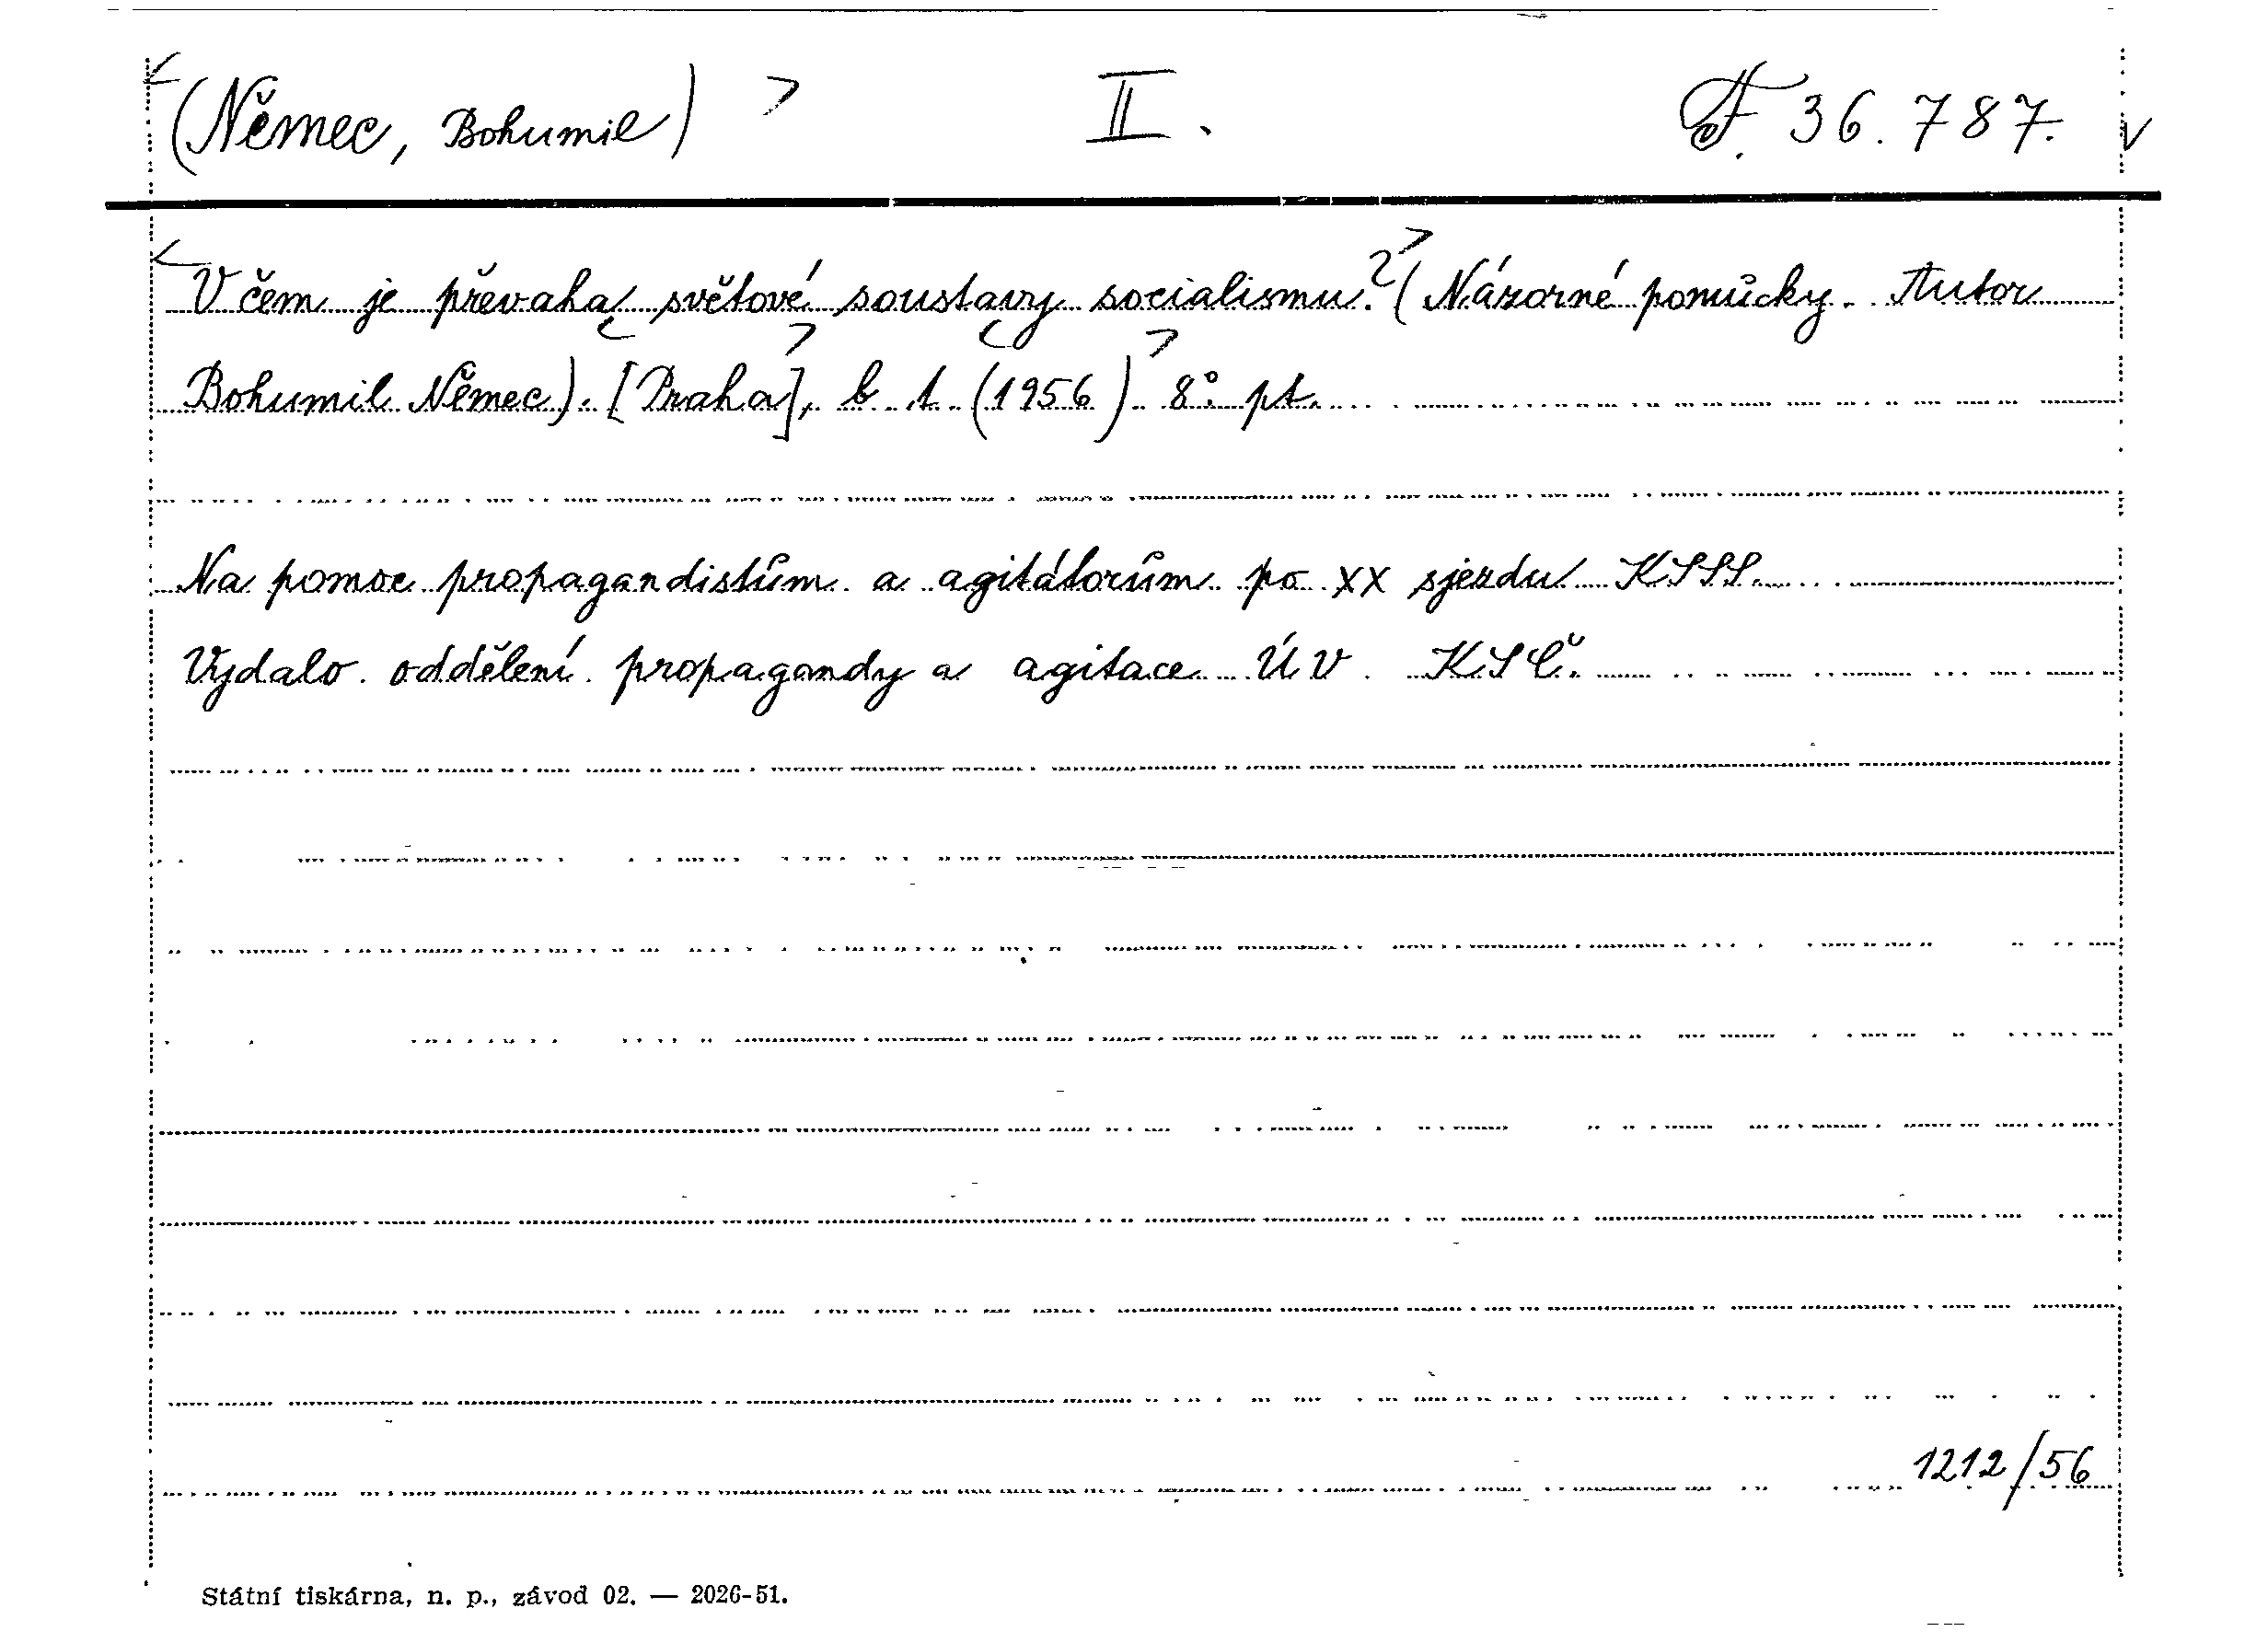 (Němec, Bohumil) II. F. 36.787.
V čem je převaha světové soustavy socialismu? (Názorné pomůcky. Autor
Bohumil Němec). [Praha], b. t. (1956) 8° pt.
Na pomoc propagandistům a agitátorům po XX sjezdu KSSS.
Vydalo oddělení propagandy a agitace ÚV KSČ.
1212/56
Státní tiskárna, n. p., závod 02. — 2026-51.